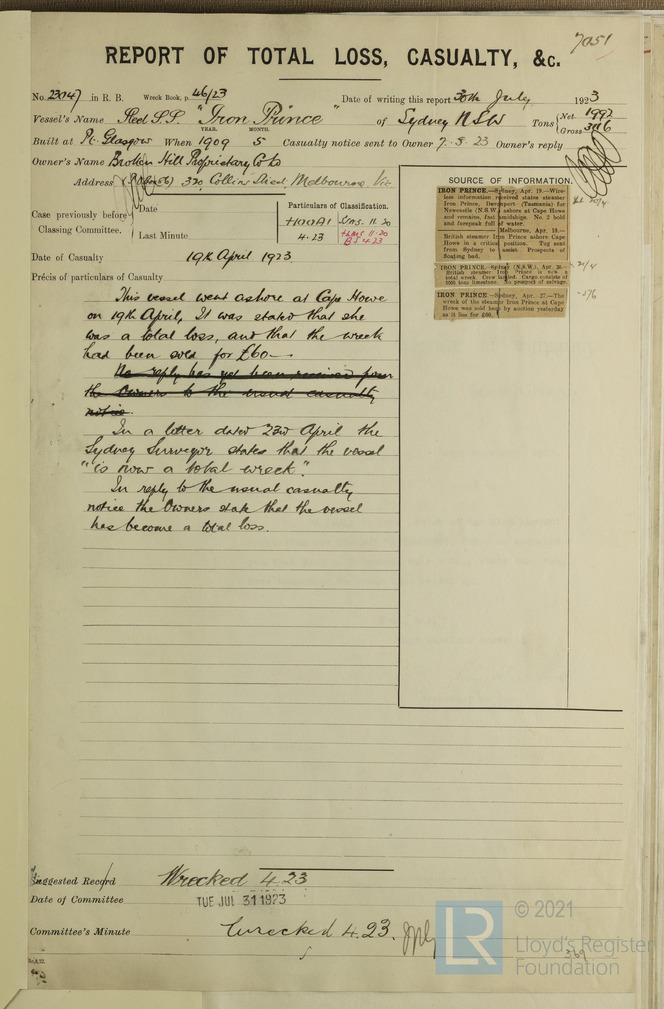 7051
REPORT OF TOTAL LOSS, CASUALTY, &c.
No. 23747 in R. B. Wreck Book, p. 46/23 Date of writing this report 30th July 1923
Vessel's Name Steel S.S. "Iron Prince" of Sydney NSW Tons { Net 1992 Gross 3116
YEAR. MONTH.
Built at Pt. Glasgow When 1909 5 Casualty notice sent to Owner 7.5.23 Owner's reply
Owner's Name Broken Hill Proprietary Co Ld
Address 320, Collins Street, Melbourne, Vic
Case previously before Classing Committee. { Date
Last Minute
Particulars of Classification.
+100A1
4.23
+LMS 11.20
BS 4.23
Date of Casualty 19th April 1923
Précis of particulars of Casualty
This vessel went ashore at Cape Howe
on 19th April, It was stated that she
was a total loss, and that the wreck
had been sold for £60—.
No reply has yet been received from
the Owners to the usual casualty
notice.
In a letter dated 23rd April the
Sydney Surveyor states that the vessel
"is now a total wreck".
In reply to the usual casualty
notice the Owners state that the vessel
has become a total loss.
SOURCE OF INFORMATION.
IRON PRINCE.—Sydney, Apr. 19.—Wire-
less information received states steamer
Iron Prince, Devonport (Tasmania) for
Newcastle (N.S.W.) ashore at Cape Howe
and remains, fast amidships. No. 2 hold
and forepeak full of water.
Melbourne, Apr. 19.—
British steamer Iron Prince ashore Cape
Howe in a critical position. Tug sent
from Sydney to assist. Prospects of
floating bad.
IRON PRINCE.—Sydney (N.S.W.), Apr.
British steamer Iron Prince is now a
total wreck. Crew landed. Cargo consists of
tons limestone. No prospect of salvage.
IRON PRINCE.—Sydney, Apr. 27.—The
wreck of the steamer Iron Prince at Cape
Howe was sold here by auction yesterday
as it lies for £60.
Suggested Record Wrecked 4.23
Date of Committee TUE JUL 31 1923
Committee's Minute Wrecked 4.23.
LR
© 2021
Lloyd's Register
Foundation